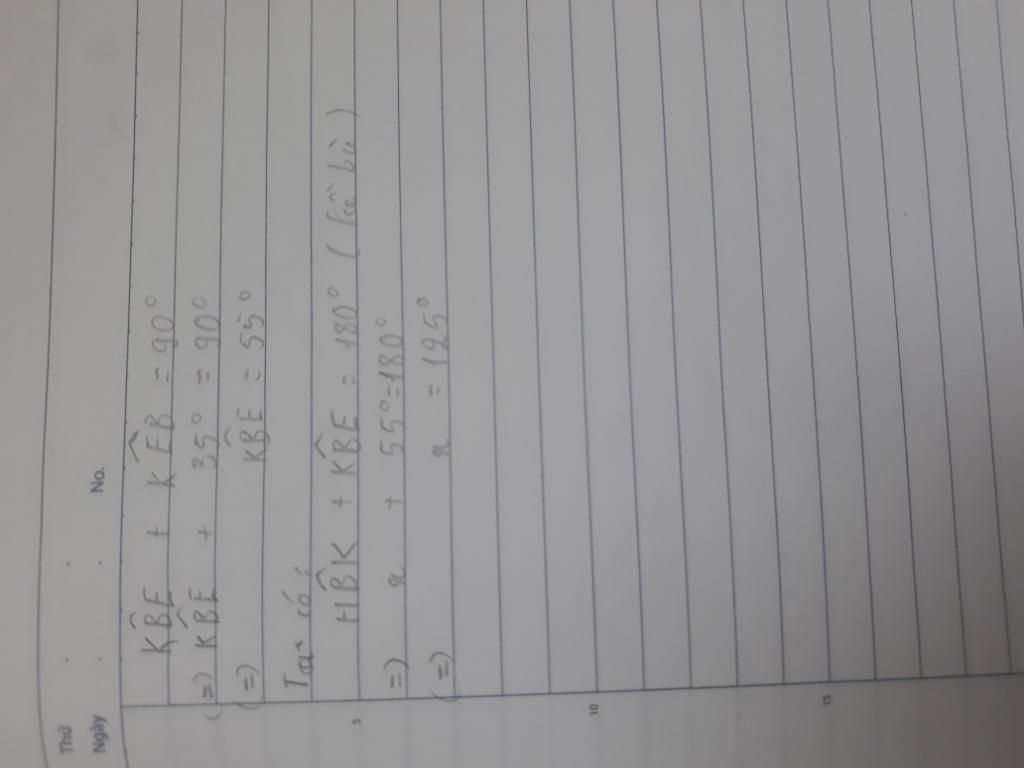 Thứ
Ngày . . No.
KB̂E + KÊB = 90°
(=) KB̂E + 35° = 90°
(=) KB̂E = 55°
Ta có:
HB̂K + KB̂E = 180° ( kề bù )
=) x + 55° = 180°
(=) x = 125°
5
10
15